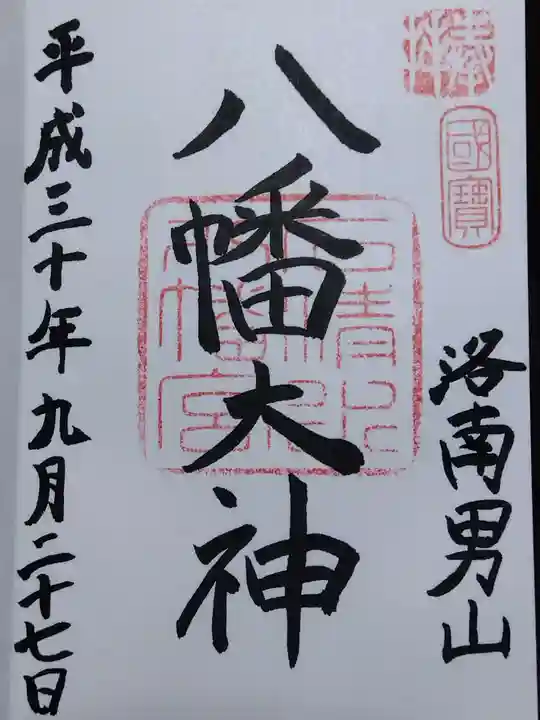 奉拝
國寶
洛南男山
八幡大神
石清水八幡宮
平成三十年九月二十七日